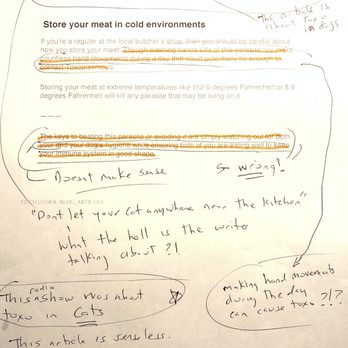 The article is
about Toxo
in dogs
Store your meat in cold environments
If you're a regular at the local butcher's shop, then you should be careful about
how you store your meat. Though washing hands kills of this parasite, we make
hand movements during a day that could potentially be enough to
contact Toxoplasmosis
Storing your meat at extreme temperatures like 152.6 degrees Fahrenheit or 8.6
degrees Fahrenheit will kill any parasite that may be living on it.
The keys to beating this parasite or avoiding it are simply watching out for both
your and your dog's hygiene while ensuring both of you are eating well to keep
your immune system in good shape.
Doesn't make sense
So wrong!
FILED UNDER: BLOG, ARTICLES
"Dont let your cat anywhere near the kitchen"
what the hell is the writer
talking about?!
making hand movements
during the day
can cause toxo?!?
radio
This show was about
toxo in cats
This article is senseless.